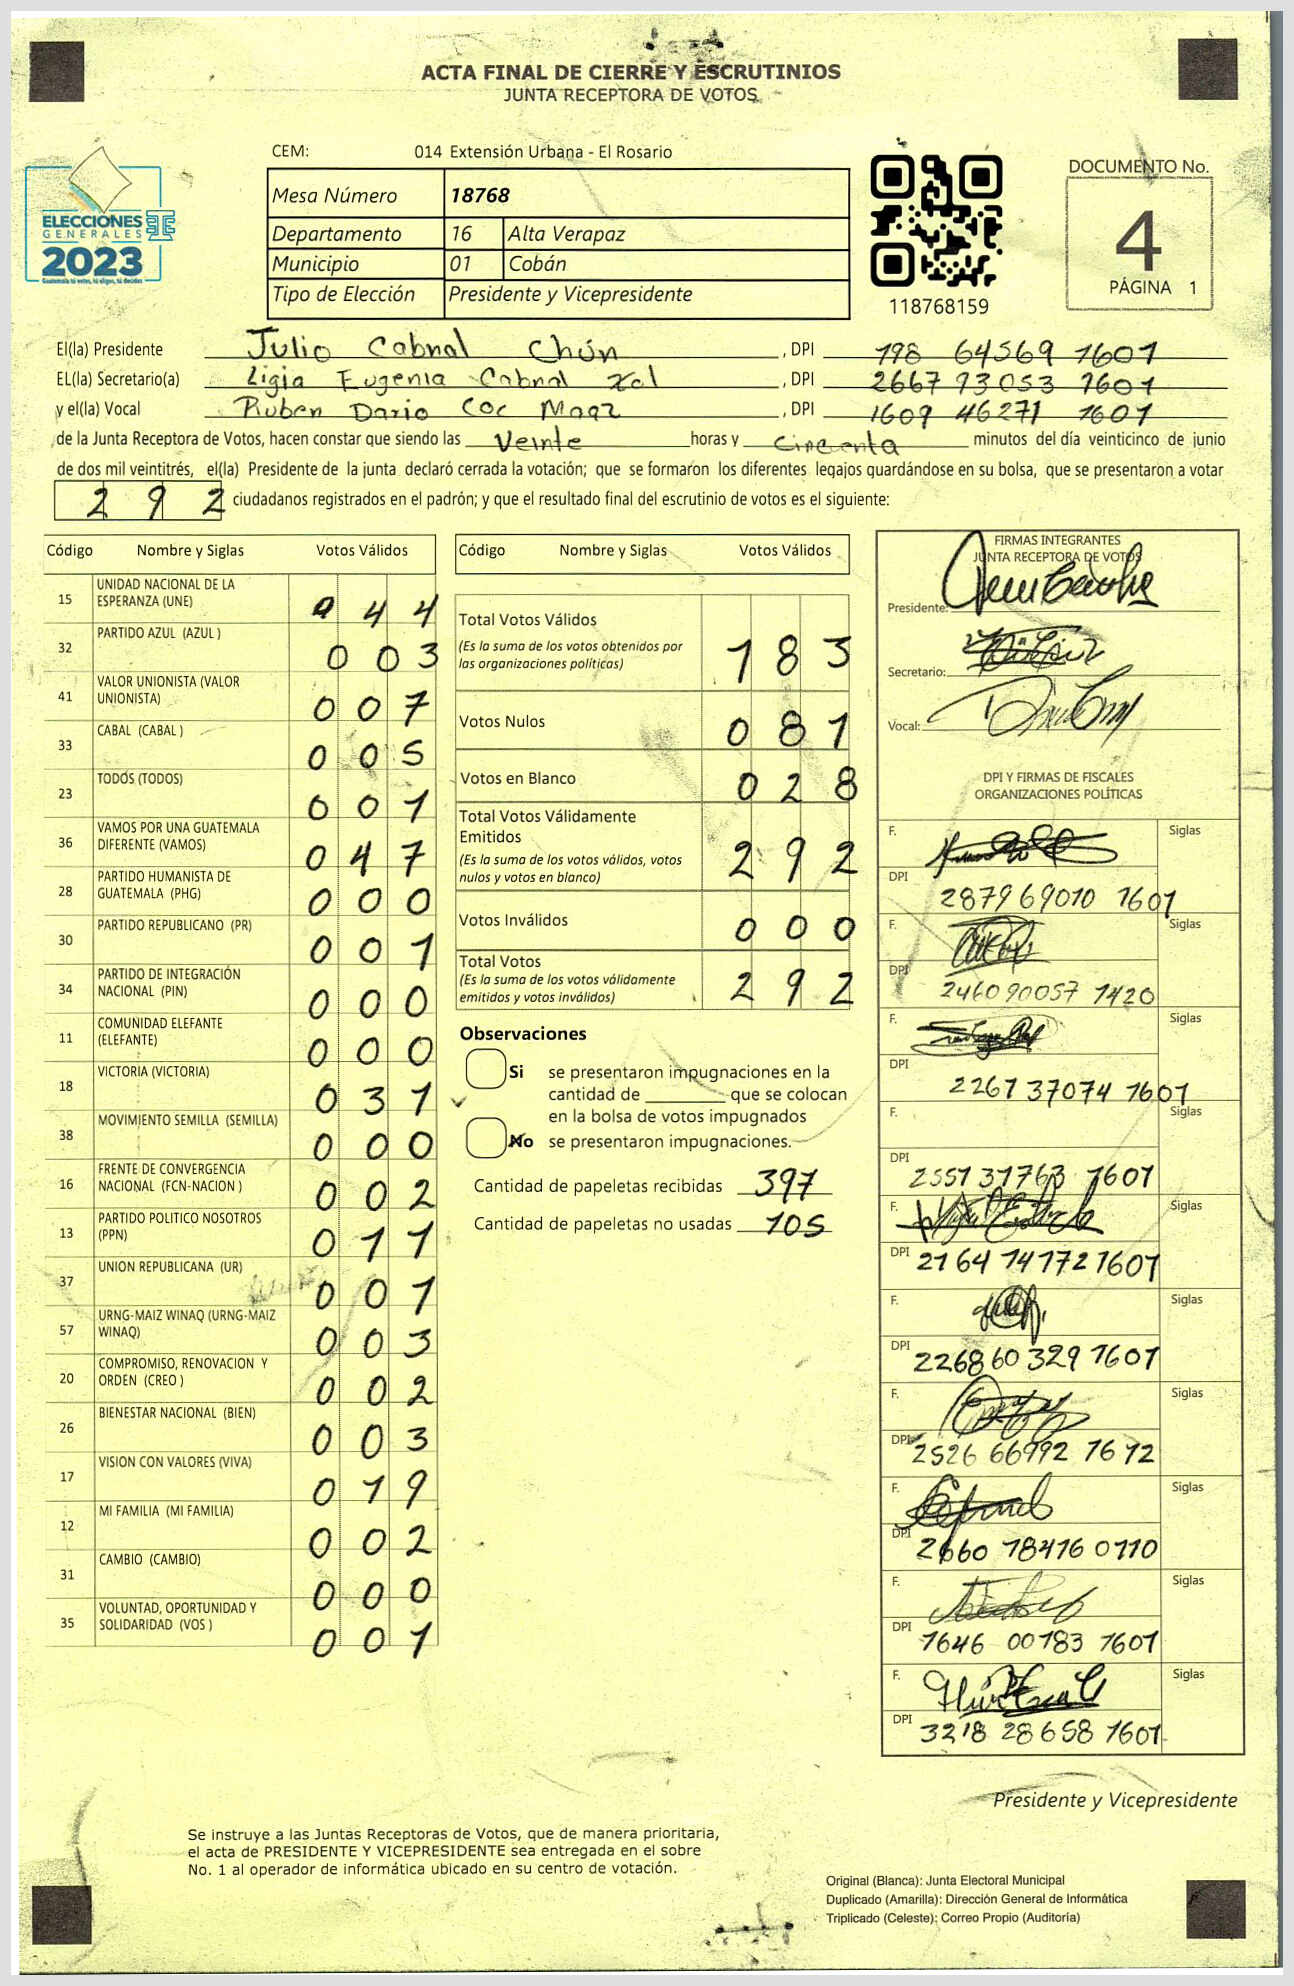 ACTA FINAL DE CIERRE Y ESCRUTINIOS
JUNTA RECEPTORA DE VOTOS
ELECCIONES
GENERALES
2023
Guatemala tú votas, tú eliges, tú decides
CEM: 014 Extensión Urbana - El Rosario
Mesa Número 18768
Departamento 16 Alta Verapaz
Municipio 01 Cobán
Tipo de Elección Presidente y Vicepresidente
118768159
DOCUMENTO No.
4
PÁGINA 1
El(la) Presidente Julio Cabnal Chún , DPI 198 64569 1601
EL(la) Secretario(a) Ligia Eugenia Cabnal Xol , DPI 2667 93053 1601
y el(la) Vocal Ruben Dario Coc Maaz , DPI 1609 46271 1601
de la Junta Receptora de Votos, hacen constar que siendo las Veinte horas y Cincuenta minutos del día veinticinco de junio
de dos mil veintitrés, el(la) Presidente de la junta declaró cerrada la votación; que se formaron los diferentes legajos guardándose en su bolsa, que se presentaron a votar
292 ciudadanos registrados en el padrón; y que el resultado final del escrutinio de votos es el siguiente:
Código Nombre y Siglas Votos Válidos
15 UNIDAD NACIONAL DE LA ESPERANZA (UNE) 0 4 4
32 PARTIDO AZUL (AZUL ) 0 0 3
41 VALOR UNIONISTA (VALOR UNIONISTA) 0 0 7
33 CABAL (CABAL ) 0 0 5
23 TODOS (TODOS) 0 0 1
36 VAMOS POR UNA GUATEMALA DIFERENTE (VAMOS) 0 4 7
28 PARTIDO HUMANISTA DE GUATEMALA (PHG) 0 0 0
30 PARTIDO REPUBLICANO (PR) 0 0 1
34 PARTIDO DE INTEGRACIÓN NACIONAL (PIN) 0 0 0
11 COMUNIDAD ELEFANTE (ELEFANTE) 0 0 0
18 VICTORIA (VICTORIA) 0 3 1
38 MOVIMIENTO SEMILLA (SEMILLA) 0 0 0
16 FRENTE DE CONVERGENCIA NACIONAL (FCN-NACION ) 0 0 2
13 PARTIDO POLITICO NOSOTROS (PPN) 0 1 1
37 UNION REPUBLICANA (UR) 0 0 1
57 URNG-MAIZ WINAQ (URNG-MAIZ WINAQ) 0 0 3
20 COMPROMISO, RENOVACION Y ORDEN (CREO ) 0 0 2
26 BIENESTAR NACIONAL (BIEN) 0 0 3
17 VISION CON VALORES (VIVA) 0 1 9
12 MI FAMILIA (MI FAMILIA) 0 0 2
31 CAMBIO (CAMBIO) 0 0 0
35 VOLUNTAD, OPORTUNIDAD Y SOLIDARIDAD (VOS ) 0 0 1
Código Nombre y Siglas Votos Válidos
Total Votos Válidos 1 8 3
(Es la suma de los votos obtenidos por
las organizaciones políticas)
Votos Nulos 0 8 1
Votos en Blanco 0 2 8
Total Votos Válidamente
Emitidos 2 9 2
(Es la suma de los votos válidos, votos
nulos y votos en blanco)
Votos Inválidos 0 0 0
Total Votos 2 9 2
(Es la suma de los votos válidamente
emitidos y votos inválidos)
Observaciones
Si se presentaron impugnaciones en la
cantidad de ________ que se colocan
en la bolsa de votos impugnados
No se presentaron impugnaciones.
Cantidad de papeletas recibidas 397
Cantidad de papeletas no usadas 105
FIRMAS INTEGRANTES
JUNTA RECEPTORA DE VOTOS
Presidente:
Secretario:
Vocal:
DPI Y FIRMAS DE FISCALES
ORGANIZACIONES POLÍTICAS
F. Siglas
DPI 2879 69010 1601
F. Siglas
DPI 2460 90057 1420
F. Siglas
DPI 2267 37074 1601
F. Siglas
DPI 2557 37763 1601
F. Siglas
DPI 2164 74172 1601
F. Siglas
DPI 2268 60 329 1601
F. Siglas
DPI 2526 66992 1612
F. Siglas
DPI 2660 18416 0110
F. Siglas
DPI 1646 00183 1601
F. Siglas
DPI 3218 28658 1601
Presidente y Vicepresidente
Se instruye a las Juntas Receptoras de Votos, que de manera prioritaria,
el acta de PRESIDENTE Y VICEPRESIDENTE sea entregada en el sobre
No. 1 al operador de informática ubicado en su centro de votación.
Original (Blanca): Junta Electoral Municipal
Duplicado (Amarilla): Dirección General de Informática
Triplicado (Celeste): Correo Propio (Auditoría)